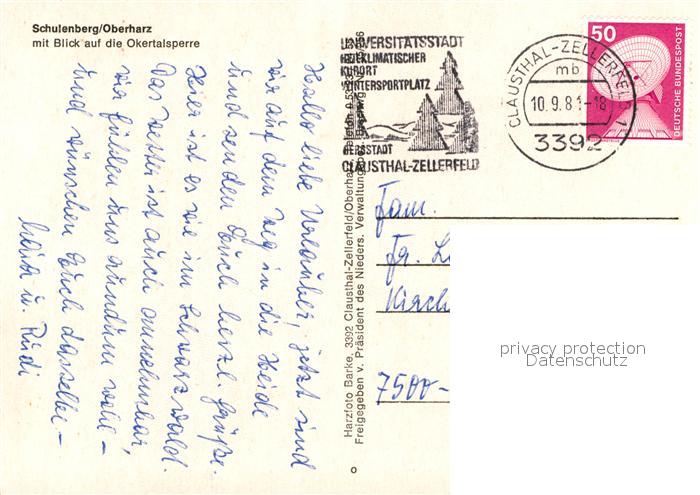 Schulenberg/Oberharz
mit Blick auf die Okertalsperre
Hallo liebe Urlauber, jetzt sind
wir auf dem Weg in die Heide
und senden Euch herzl. Grüße.
Hier ist es wie im Schwarzwald.
Das Wetter ist auch annehmbar,
wir fühlen uns rundum wohl –
und wünschen Euch dasselbe –
u. Rudi
Harzfoto Barke, 3392 Clausthal-Zellerfeld/Oberharz
Freigegeben v. Präsident des Nieders. Verwaltungsbez.
UNIVERSITÄTSSTADT
HEILKLIMATISCHER
KURORT
WINTERSPORTPLATZ
BERGSTADT
CLAUSTHAL-ZELLERFELD
CLAUSTHAL-ZELLERFELD 1
mb
10.9.81-18
3392
50
DEUTSCHE BUNDESPOST
Fam.
Fr.
Kirch
7500-
privacy protection
Datenschutz